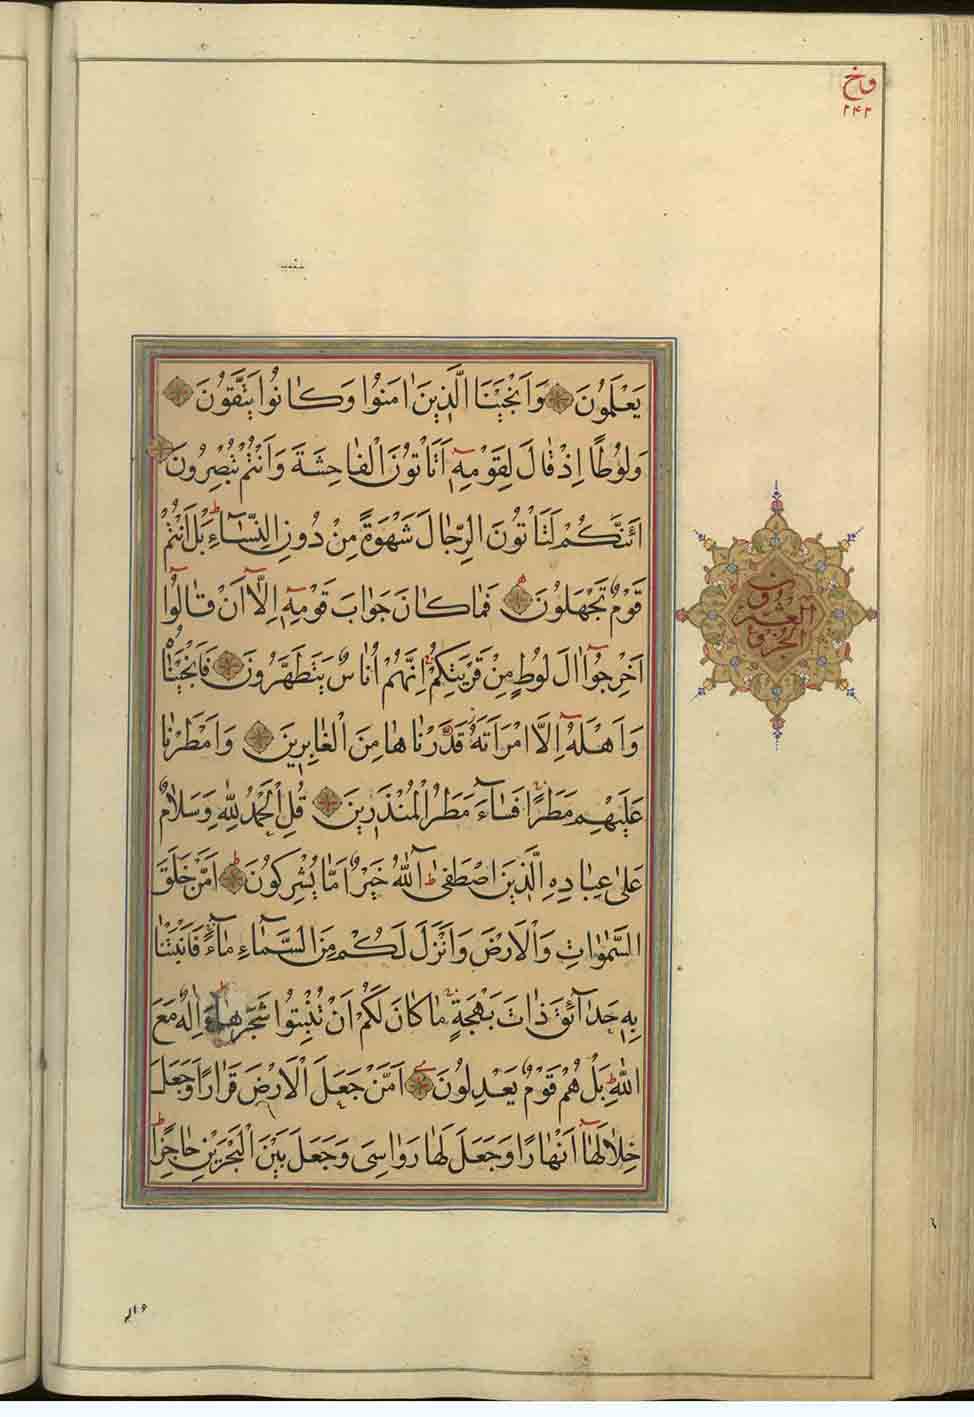 وخ
۲۴۲
يَعْلَمُونَ وَاَنْجَيْنَا الَّذينَ اٰمَنُوا وَكٰانُوا يَتَّقُونَ
وَلُوطًا اِذْ قٰالَ لِقَوْمِهٖٓ اَتَاْتُونَ الْفٰاحِشَةَ وَاَنْتُمْ تُبْصِرُونَ
اَئِنَّكُمْ لَتَاْتُونَ الرِّجٰالَ شَهْوَةً مِنْ دُونِ النِّسٰٓاءِ ط بَلْ اَنْتُمْ
قَوْمٌ تَجْهَلُونَ فَمٰا كٰانَ جَوٰابَ قَوْمِهٖٓ اِلّٰآ اَنْ قٰالُوٓا
اَخْرِجُوٓا اٰلَ لُوطٍ مِنْ قَرْيَتِكُمْ اِنَّهُمْ اُنٰاسٌ يَتَطَهَّرُونَ فَاَنْجَيْنٰاهُ
وَاَهْلَهُٓ اِلَّا امْرَاَتَهُ قَدَّرْنٰاهٰا مِنَ الْغٰابِرينَ وَاَمْطَرْنٰا
عَلَيْهِمْ مَطَرًا فَسٰٓاءَ مَطَرُ الْمُنْذَرينَ قُلِ الْحَمْدُ لِلّٰهِ وَسَلٰامٌ
عَلىٰ عِبٰادِهِ الَّذينَ اصْطَفىٰ ط آللّٰهُ خَيْرٌ اَمّٰا يُشْرِكُونَ اَمَّنْ خَلَقَ
السَّمٰوٰاتِ وَالْاَرْضَ وَاَنْزَلَ لَكُمْ مِنَ السَّمٰٓاءِ مٰٓاءً فَاَنْبَتْنٰا
بِهٖ حَدٰٓائِقَ ذٰاتَ بَهْجَةٍ مٰا كٰانَ لَكُمْ اَنْ تُنْبِتُوا شَجَرَهٰا ءَاِلٰهٌ مَعَ
اللّٰهِ ط بَلْ هُمْ قَوْمٌ يَعْدِلُونَ اَمَّنْ جَعَلَ الْاَرْضَ قَرٰارًا وَجَعَلَ
خِلٰالَهٰٓا اَنْهٰارًا وَجَعَلَ لَهٰا رَوٰاسِىَ وَجَعَلَ بَيْنَ الْبَحْرَيْنِ حٰاجِزًا ط
العشرون